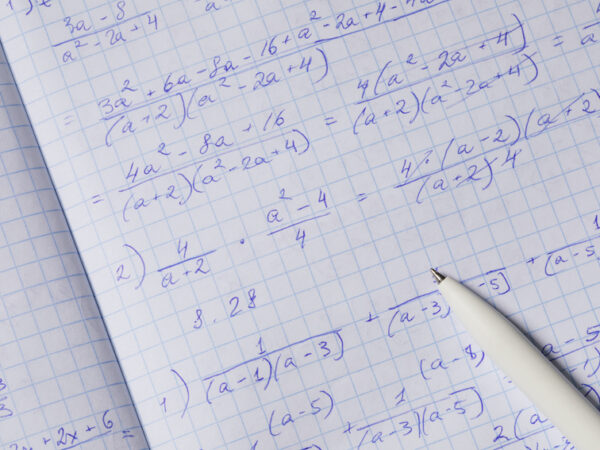 1)
(3a - 8)/(a² - 2a + 4)
= (3a² + 6a - 8a - 16 + a² - 2a + 4 - 4a)/((a+2)(a² - 2a + 4))
= (4a² - 8a + 16)/((a+2)(a² - 2a + 4)) = (4(a² - 2a + 4))/((a+2)(a² - 2a + 4)) =
2) 4/(a+2) · (a² - 4)/4 = (4 · (a-2)(a+2))/((a+2) · 4)
8.28
1) 1/((a-1)(a-3)) + /(a-3) -5) + 1/(a-5
(a-5) (a-8) a-5
+ 1/((a-3)(a-5)) 2(a
+ 2x + 6 =